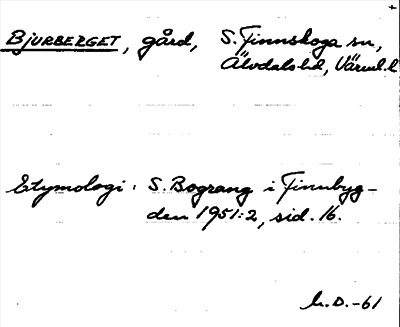 BJURBERGET, gård, S. Finnskoga sn,
Älvdals hd, Värml. l.
Etymologi: S. Bograng i Finnbyg-
den 1951:2, sid. 16.
L.D.-61